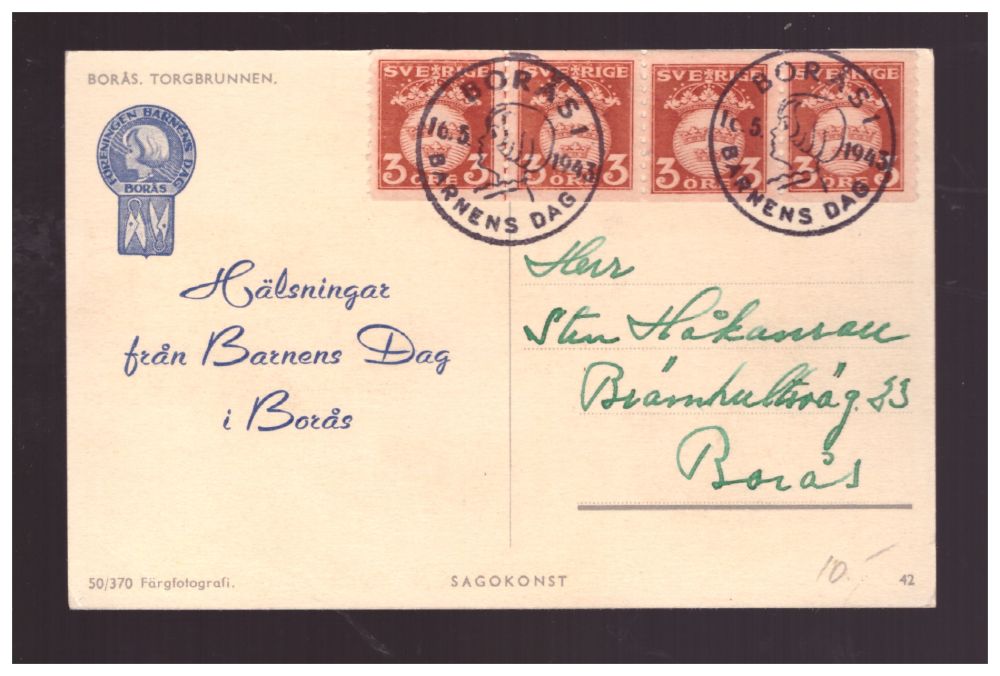 BORÅS. TORGBRUNNEN.
FÖRENINGEN BARNENS DAG
BORÅS
SVERIGE SVERIGE SVERIGE SVERIGE
3 ÖRE 3 3 ÖRE 3 3 ÖRE 3 3 ÖRE 3
BORÅS 1
16.5. 1943
BARNENS DAG
BORÅS 1
16.5. 1943
BARNENS DAG
Hälsningar
från Barnens Dag
i Borås
Herr
Sten Håkanson
Brämhultsväg. 23
Borås
10.-
50/370 Färgfotografi.
SAGOKONST
42